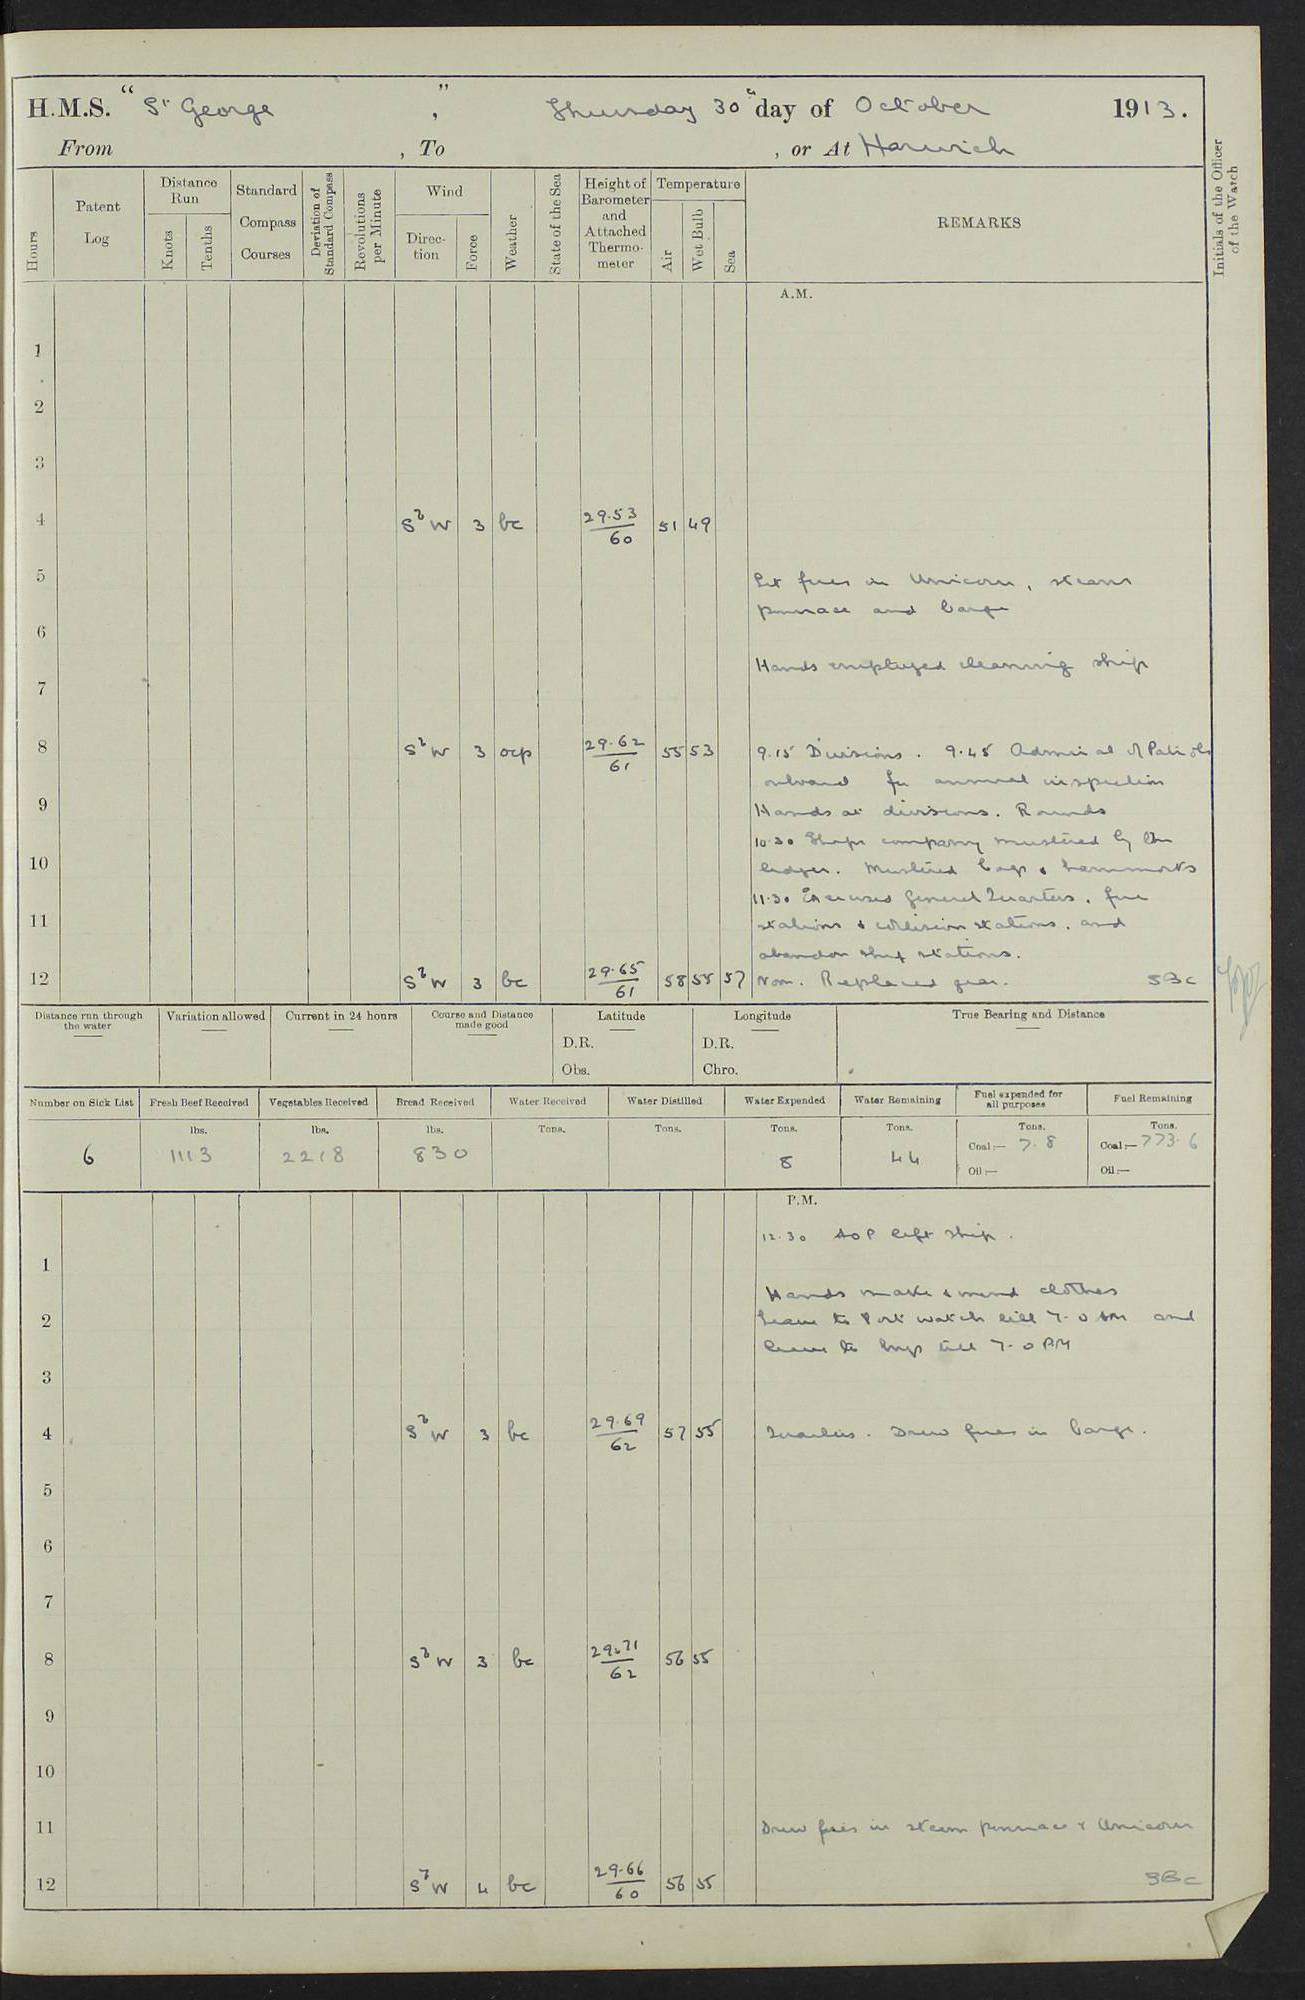 H.M.S. "St George", Thursday 30th day of October 1913.
From , To , or At Harwich
Hours
Patent Log
Distance Run
Knots
Tenths
Standard Compass Courses
Deviation of Standard Compass
Revolutions per Minute
Wind
Direction
Force
Weather
State of the Sea
Height of Barometer and Attached Thermometer
Temperature
Air
Wet Bulb
Sea
REMARKS
Initials of the Officer of the Watch
A.M.
1
2
3
4 SW 3 bc 29.53 60 51 49
5 Lit fires in Unicorn, steam
pinnace and barge
6
Hands employed cleaning ship
7
8 SW 3 ocp 29.62 61 55 53 9.15 Divisions. 9.45 Admiral of Patrols
onboard for annual inspection
9 Hands at divisions. Rounds
10.30 Ships company mustered by the
10 ledger. Mustered bags & hammocks
11.30 Exercised General Quarters, fire
11 stations & collision stations, and
abandon ship stations.
12 SW 3 bc 29.65 61 58 55 57 Noon. Replaced gear. SBC
Distance run through the water
Variation allowed
Current in 24 hours
Course and Distance made good
Latitude
D.R.
Obs.
Longitude
D.R.
Chro.
True Bearing and Distance
Number on Sick List
Fresh Beef Received
Vegetables Received
Bread Received
Water Received
Water Distilled
Water Expended
Water Remaining
Fuel expended for all purposes
Fuel Remaining
lbs. lbs. lbs. Tons. Tons. Tons. Tons. Tons. Tons.
6 1113 2218 830 8 44 Coal:— 7.8 Coal:— 773.6
Oil:— Oil:—
P.M.
12.30 AOP left ship.
1
Hands make & mend clothes
2 Leave to Port watch till 7.0 AM and
leave to boys till 7.0 PM
3
4 SW 3 bc 29.69 62 57 55 Quarters. Drew fires in barge.
5
6
7
8 SW 3 bc 29.71 62 56 55
9
10
11 Drew fires in steam pinnace & Unicorn
12 SW 4 bc 29.66 60 56 55 SBC